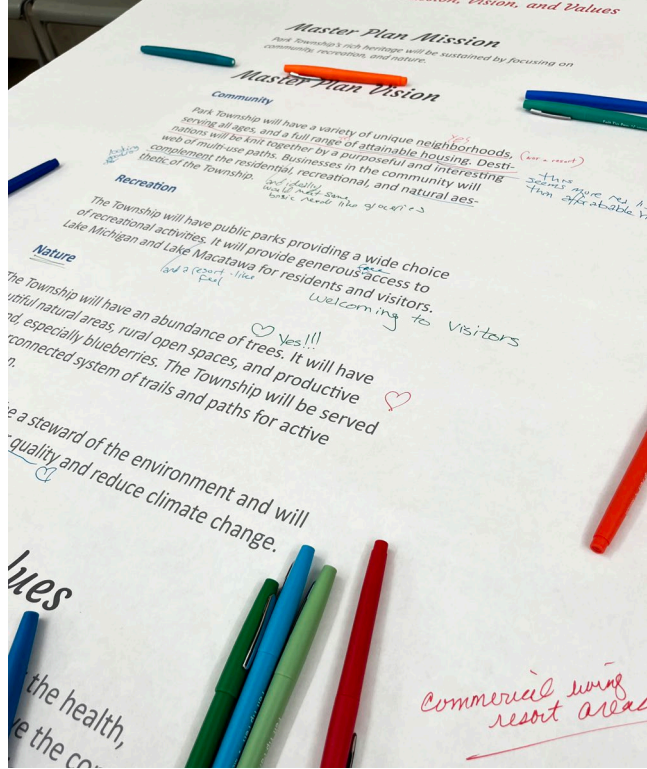 ssion, Vision, and Values
Master Plan Mission
Park Township's rich heritage will be sustained by focusing on
community, recreation, and nature.
Master Plan Vision
Community
Park Township will have a variety of unique neighborhoods,
yes
serving all ages, and a full range of attainable housing. Desti-
(not a resort)
nations will be knit together by a purposeful and interesting
this
web of multi-use paths. Businesses in the community will
seems more
complement the residential, recreational, and natural aes-
than
thetic of the Township.
and ideally
would meet some
basic needs like groceries
Recreation
The Township will have public parks providing a wide choice
of recreational activities. It will provide generous access to
free
Lake Michigan and Lake Macatawa for residents and visitors.
and a resort-like
feel
welcoming to visitors
Nature
The Township will have an abundance of trees. It will have
Yes!!!
utiful natural areas, rural open spaces, and productive
nd, especially blueberries. The Township will be served
connected system of trails and paths for active
n.
e a steward of the environment and will
quality and reduce climate change.
lues
the health,
e the
commercial
resort areas